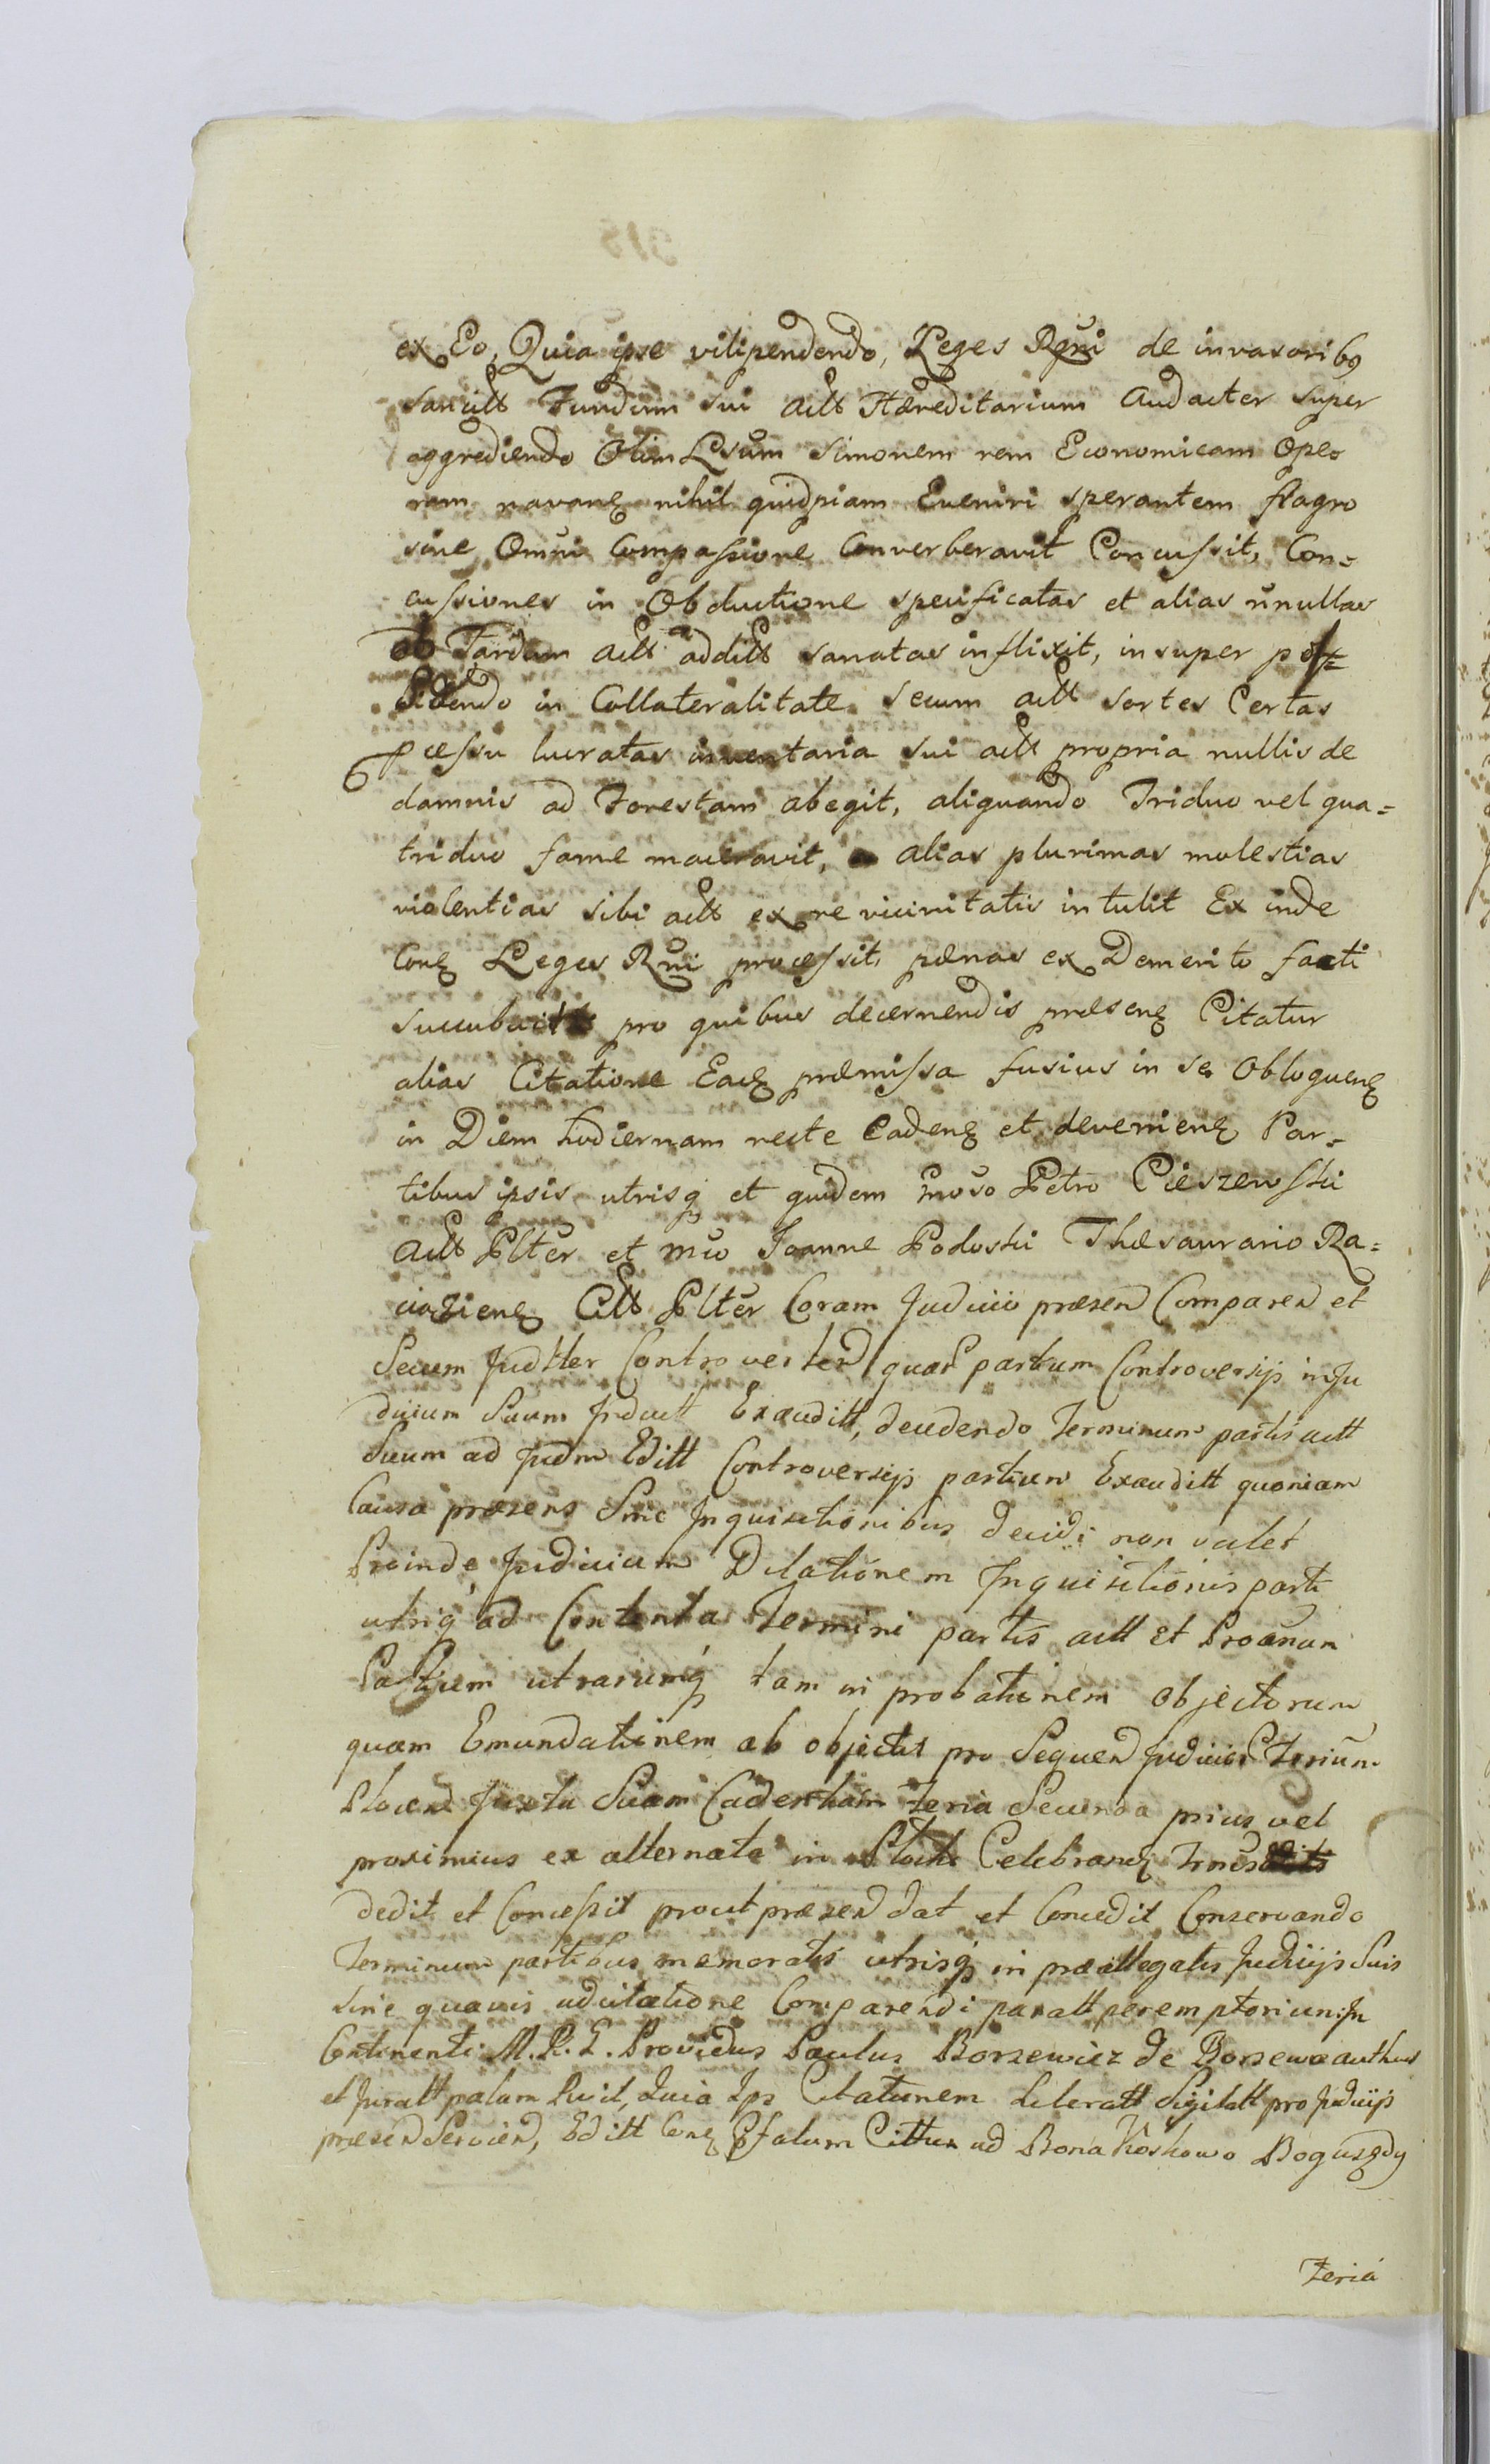 ex Eo, Quia ipse vilipendendo, Leges Rgni de invasoribq
sancitt Fundum sui actt Hæreditarium Audacter super
aggrediendo Olim Lsum Simonem rem Economicam Ope-
ram navanę nihil quidpiam Eveniri sperantem flagro
sine Omni Compassione Converberavit Concussit, Con-
cussiones in Obductione specificatas et alias nnullas
ob Tardam actt additt sanatas inflixit, insuper pos-
sidendo in Collateralitate secum actt sortes Certas
pcessu lucratas inventaria sui actt propria nullis de
damnis ad Forestam abegit, aliquando Triduo vel qua-
triduo fame maceravit, alias plurimas molestias
violentias sibi actt ex re vicinitatis intulit Ex inde
Conę Leges Rni processit, pœnas ex Demerito facti
succubuit pro quibus decernendis præsenę Citatur
alias Citatione Eaę præmissa fusius in se Obloquenę
in Diem hodiernam recte Cadenę et devenienę Par-
tibus ipsis utrisq et quidem Petro Cieszewski
Actt Plter et Mco Joanne Podoski Thæsaurario Ra-
ciązienę Citt Plter Coram Judicio præsen Comparen et
Secum Judtter Controverten quar partium Controversijs in Ju
dicium Suum Inductt Exauditt, decidendo Terminum partis actt
Suum ad Judm Editt Controversijs partium Exauditt quoniam
Causa præsens Sine Inquisitionibus decidi non valet
Proinde Judicium Dilationem Inquisitionis parti
utriq ad Contenta Termini partis actt et Proanum
Partium utrarumq tam in probationem objectorum
quam Emundationem ab objectis pro Sequen Judicijs Terium
Plocen Juxta Suam Cadentiam Feria Secunda prius vel
proximius ex alternata in Plocko Celebranę
dedit et Concessit prout præsen dat et Concedit Conservando
Terminum partibus memoratis utrisq in præallegatis Judicijs Suis
Sine quavis adcitatione Comparendi paratt peremptorium. In
Continenti M. R. G. Providus Paulus Borzewicz de Borzewo authus
et Juratt palam , Quia Ips Citationem Literatt Sigilatt pro Judicijs
præsen Servien, Editt Conę Psatum Cittum ad Bona Koskowo Boguszędy
Feria